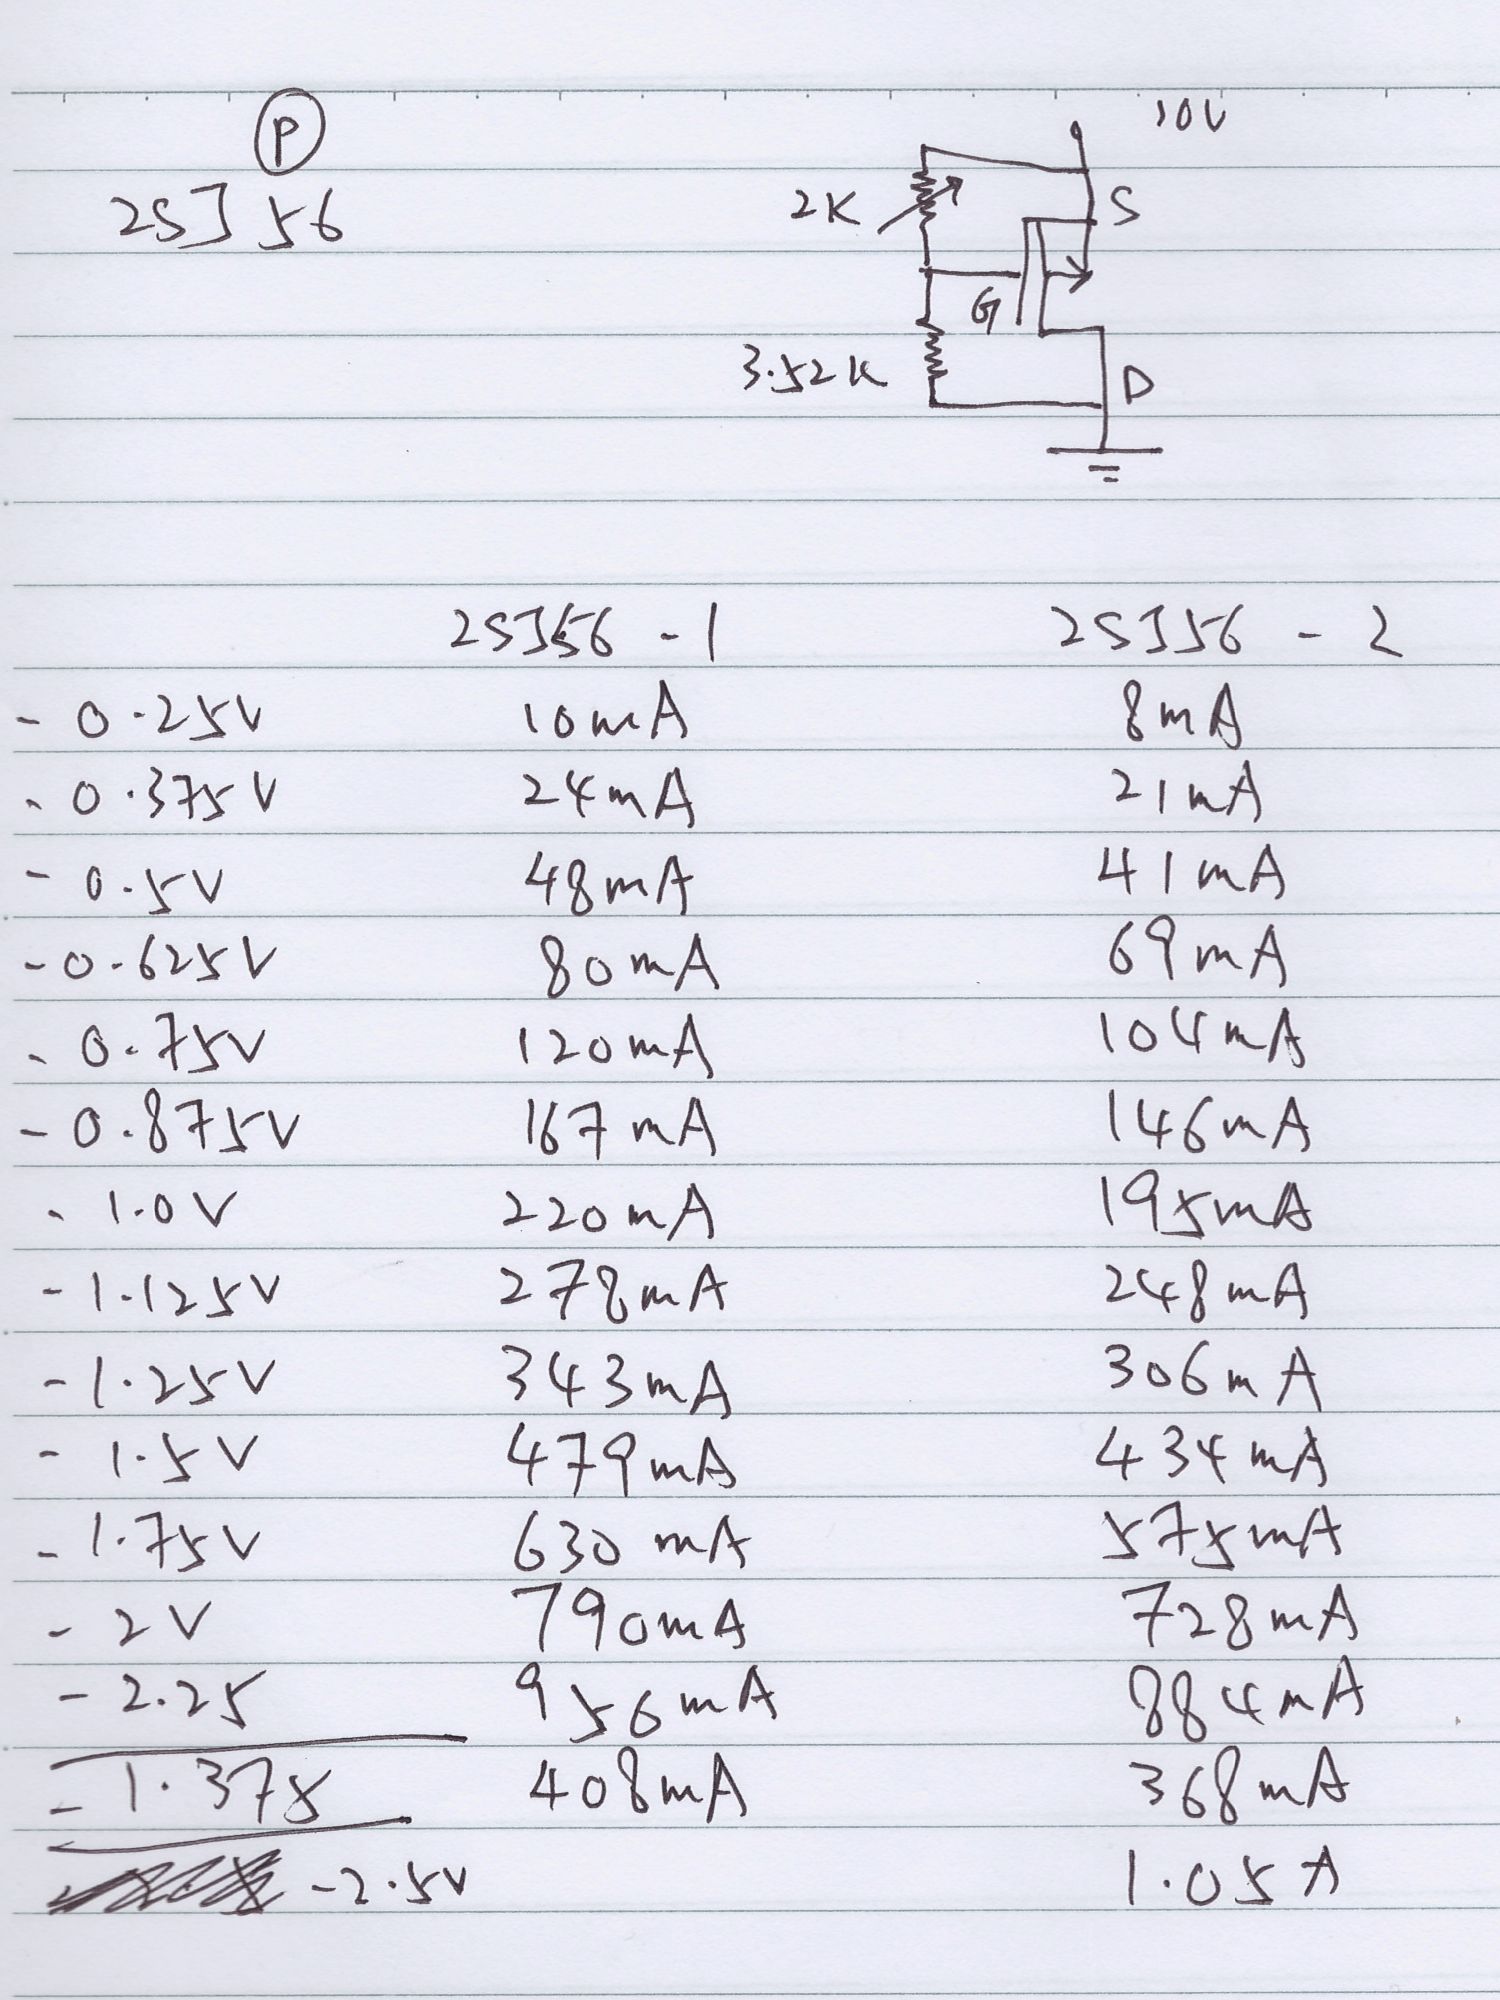 P
10V
2SJ56
2K
S
G
3.52K
D
2SJ56 - 1 2SJ56 - 2
- 0.25V 10mA 8mA
- 0.375V 24mA 21mA
- 0.5V 48mA 41mA
- 0.625V 80mA 69mA
- 0.75V 120mA 104mA
- 0.875V 167mA 146mA
- 1.0V 220mA 195mA
- 1.125V 278mA 248mA
- 1.25V 343mA 306mA
- 1.5V 479mA 434mA
- 1.75V 630mA 575mA
- 2V 790mA 728mA
- 2.25 956mA 884mA
- 1.375 408mA 368mA
- 2.5V 1.05A